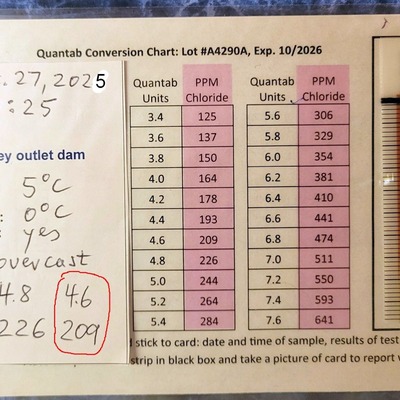 Quantab Conversion Chart: Lot #A4290A, Exp. 10/2026
. 27, 2025
: 25
ey outlet dam
5°C
: 0°C
: yes
overcast
4.8 4.6
226 209
Quantab Units PPM Chloride Quantab Units PPM Chloride
3.4 125 5.6 306
3.6 137 5.8 329
3.8 150 6.0 354
4.0 164 6.2 381
4.2 178 6.4 410
4.4 193 6.6 441
4.6 209 6.8 474
4.8 226 7.0 511
5.0 244 7.2 550
5.2 264 7.4 593
5.4 284 7.6 641
stick to card: date and time of sample, results of test
strip in black box and take a picture of card to report